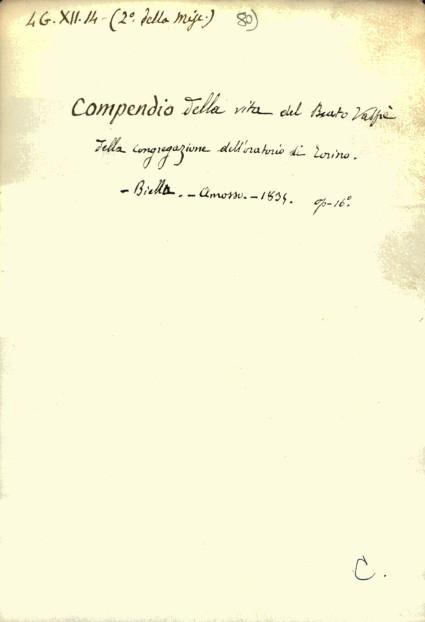 4G.XII.14-(2º. della Misc.) 80)
Compendio della vita del Beato Valfrè
della congregazione dell'oratorio di Torino.
- Biella. - Amosso. - 1834. op-16º
C.